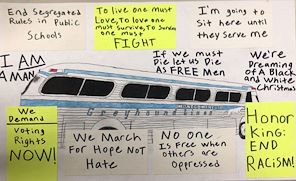 End Segregated
Rules in Public
Schools
To live one must
Love, To love one
must Survive, To Survive
one must
FIGHT
I'm going to
Sit here until
they Serve me
I AM
A MAN
If we must
Die let us Die
As FREE Men
We're
Dreaming
of A Black
and white
Christmas
Greyhound Lines
We
Demand
Voting
Rights
NOW!
We March
For Hope Not
Hate
NO One
Is Free when
others are
Oppressed
Honor
King: END
RACISM!